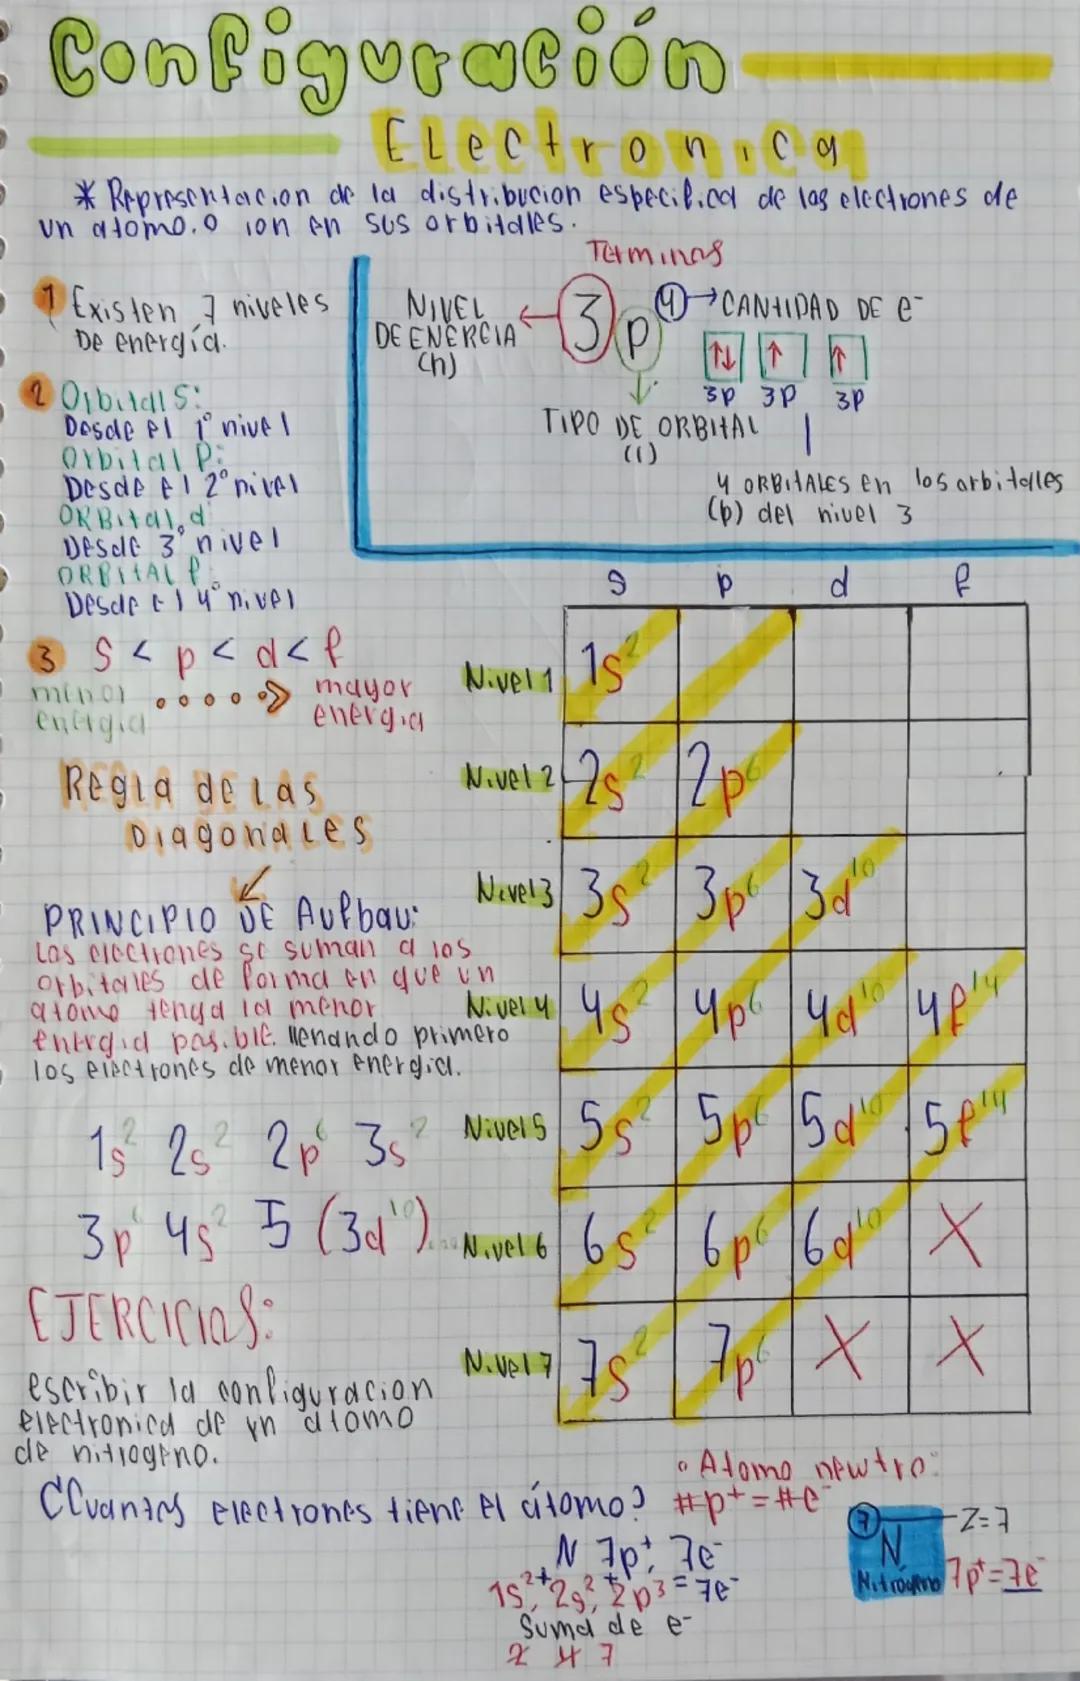 Configuración
Electronica
* Representacion de la distribucion especifica de los electrones de
un atomo.o ion en sus orbitales.
1 Existen 7 niveles
De energía.
2 Orbital S:
Desde el 1° nivel
Orbital P:
Desde el 2° nivel
ORBital d
Desde 3° nivel
ORBITAL f
Desde el 4° nivel
3 S < p < d < f
menor energia
mayor energia
Terminos
NIVEL DE ENERGIA (n)
3p⁴
CANTIDAD DE e⁻
↑↓ ↑ ↑
3p 3p 3p
TIPO DE ORBITAL (l)
4 ORBITALES en los orbitales
(p) del nivel 3
Regla de las
Diagonales
PRINCIPIO DE Aufbau:
Los electrones se suman a los
orbitales de forma en que un
atomo tenga la menor
energia posible. llenando primero
los electrones de menor energia.
1s² 2s² 2p⁶ 3s²
3p⁶ 4s² 5 (3d¹⁰)...
s p d f
Nivel 1 1s²
Nivel 2 2s² 2p⁶
Nivel 3 3s² 3p⁶ 3d¹⁰
Nivel 4 4s² 4p⁶ 4d¹⁰ 4f¹⁴
Nivel 5 5s² 5p⁶ 5d¹⁰ 5f¹⁴
Nivel 6 6s² 6p⁶ 6d¹⁰ X
Nivel 7 7s² 7p⁶ X X
EJERCICIOS:
escribir la configuracion
electronica de un atomo
de nitrogeno.
¿Cuantos electrones tiene el átomo?
• Atomo newtro:
#p⁺ = #e⁻
N 7p⁺, 7e⁻
1s²⁺, 2s²⁺, 2p³ = 7e⁻
Suma de e⁻
2 4 7
7
N
Nitrogeno
Z=7
7p⁺=7e⁻